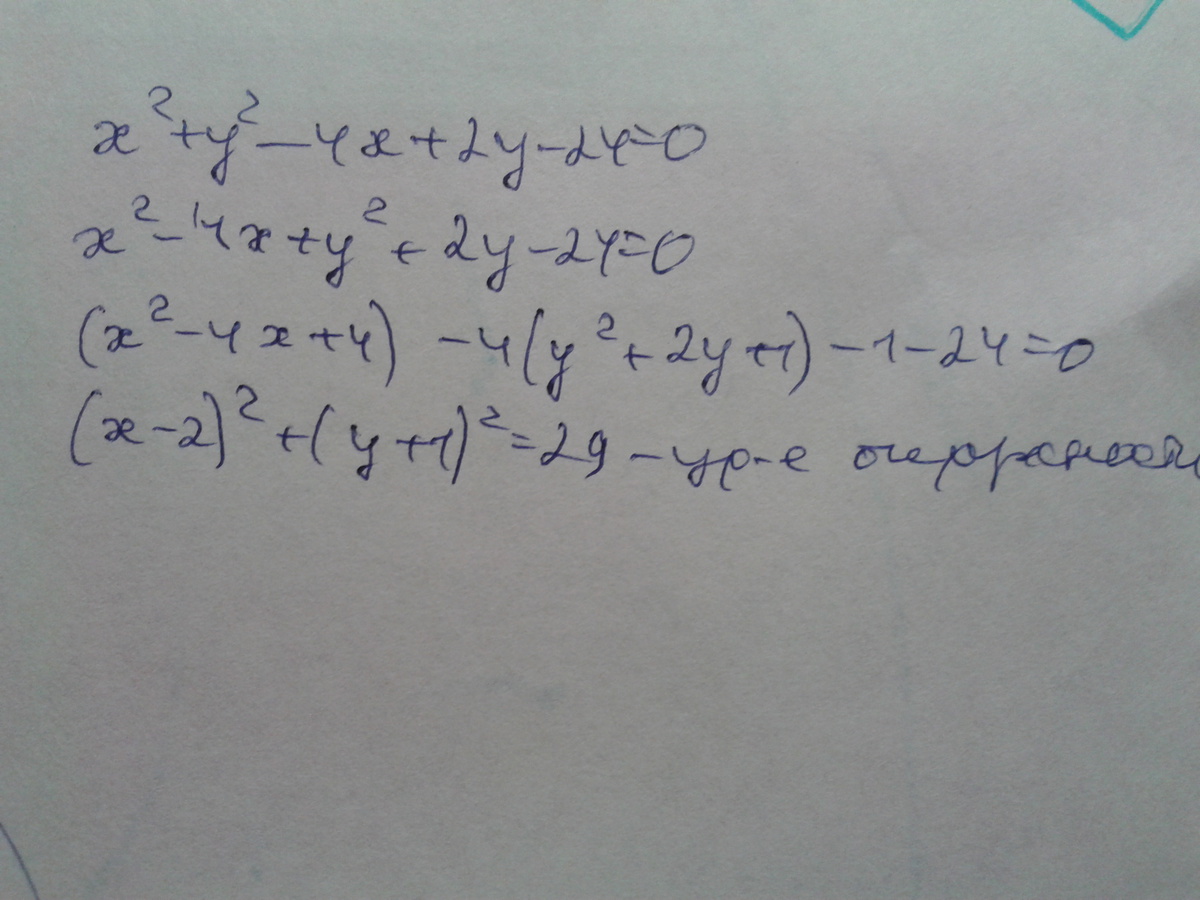 x²+y²-4x+2y-24=0
x²-4x+y²+2y-24=0
(x²-4x+4) -4(y²+2y+1)-1-24=0
(x-2)²+(y+1)²=29 - ур-е окружности